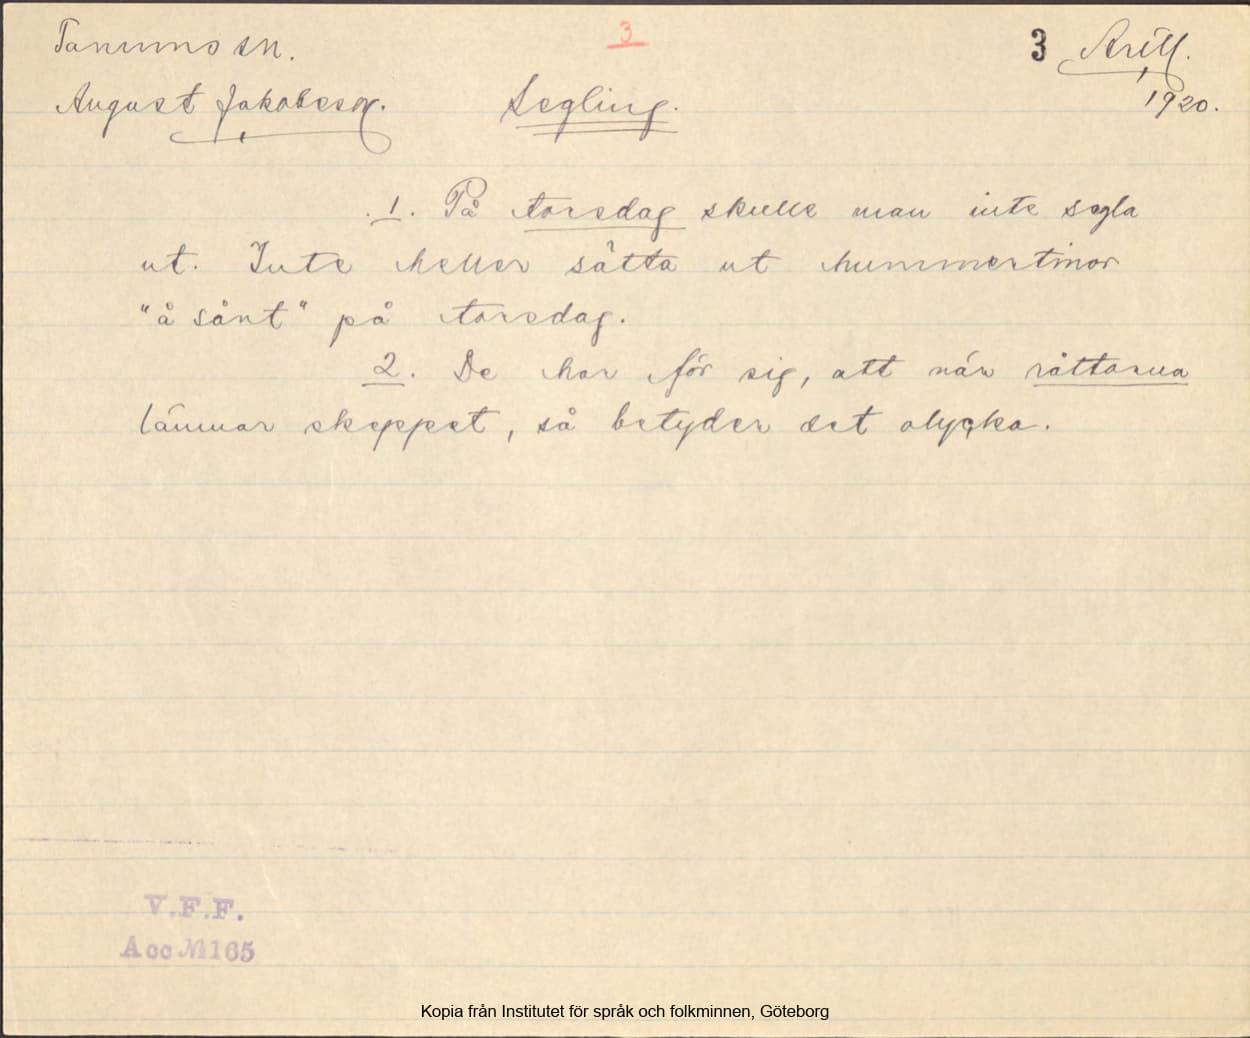 Tanums sn. 3 3 Arill.
August Jakobsson. Segling. 1920.
1. På torsdag skulle man inte segla
ut. Inte heller sätta ut hummertinor
"å sånt" på torsdag.
2. De har för sig, att när råttorna
lämnar skeppet, så betyder det olycka.
V.F.F.
Acc № 165
Kopia från Institutet för språk och folkminnen, Göteborg